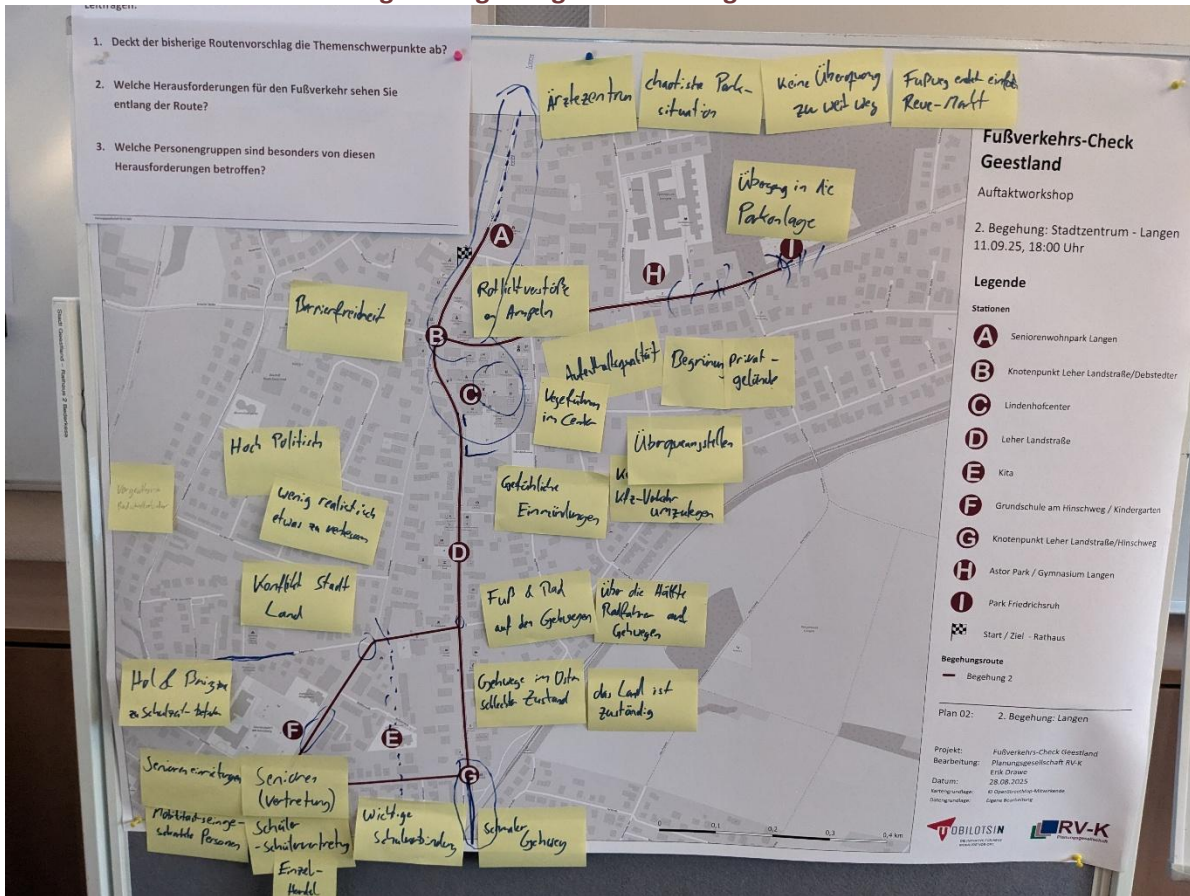 1. Deckt der bisherige Routenvorschlag die Themenschwerpunkte ab?
2. Welche Herausforderungen für den Fußverkehr sehen Sie
entlang der Route?
3. Welche Personengruppen sind besonders von diesen
Herausforderungen betroffen?
Ärztezentrum
chaotische Park-
situation
Keine Überquerung
zu weit weg
Fußweg endet einfach
Rewe-Markt
Übergang in die
Parkanlage
Barrierefreiheit
Rotlichtverstöße
an Ampeln
Aufenthaltsqualität
Begrünung Privat-
gelände
Wegeführung
im Center
Überquerungsstellen
Hoch Politisch
wenig realistisch
etwas zu verbessern
Gefährliche
Einmündungen
Kfz-Verkehr
umzulegen
Konflikt Stadt
Land
Fuß & Rad
auf den Gehwegen
Über die Hälfte
Radfahrer auf
Gehwegen
Hol & Bringzone
zu Schulzeit
Gehwege im Osten
schlechter Zustand
das Land ist
zuständig
Senioreneinrichtungen
Senioren
(Vertretung)
Mobilitätseinge-
schränkte Personen
Schüler
-schülervertretung
Einzel-
Handel
Wichtige
Schulverbindung
Schmaler
Gehweg
A
B
C
D
E
F
G
H
I
Fußverkehrs-Check
Geestland
Auftaktworkshop
2. Begehung: Stadtzentrum - Langen
11.09.25, 18:00 Uhr
Legende
Stationen
A Seniorenwohnpark Langen
B Knotenpunkt Leher Landstraße/Debstedter
C Lindenhofcenter
D Leher Landstraße
E Kita
F Grundschule am Hinschweg / Kindergarten
G Knotenpunkt Leher Landstraße/Hinschweg
H Astor Park / Gymnasium Langen
I Park Friedrichsruh
Start / Ziel - Rathaus
Begehungsroute
Begehung 2
Plan 02: 2. Begehung: Langen
Projekt: Fußverkehrs-Check Geestland
Bearbeitung: Planungsgesellschaft RV-K
Erik Drawe
Datum: 28.08.2025
Kartengrundlage: © OpenStreetMap-Mitwirkende
Datengrundlage: Eigene Bearbeitung
0 0,1 0,2 0,3 0,4 km
MOBILOTSIN
RV-K
Planungsgesellschaft
Stadt Geestland - Rathaus 2 Bederkesa